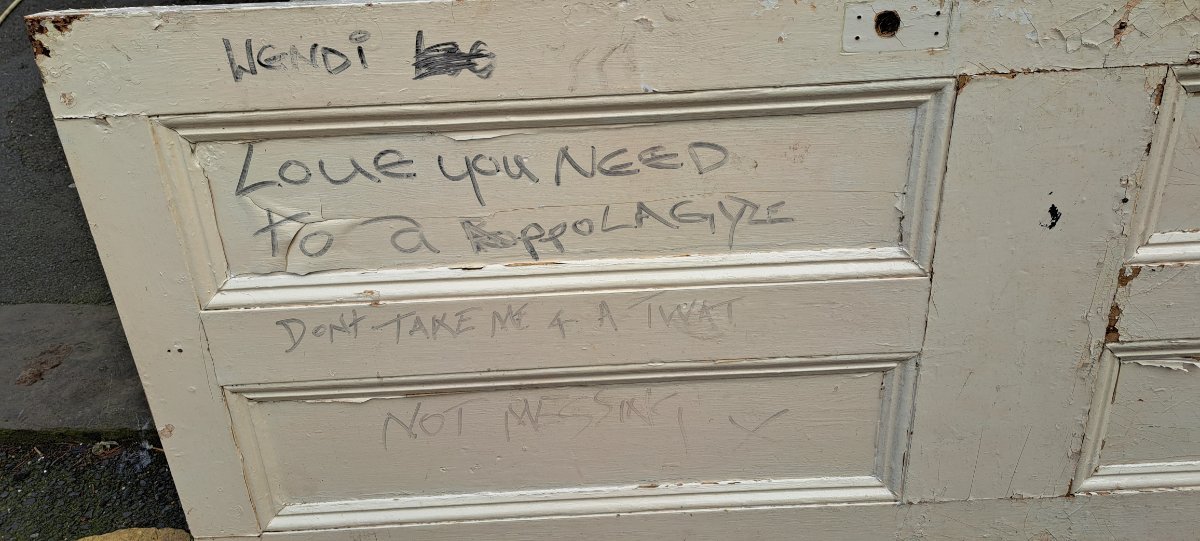 WENDI
LOUE you NEED
to a AppoLAGYZE
DONt TAKE ME 4 A TWAT
NOT MESSING x